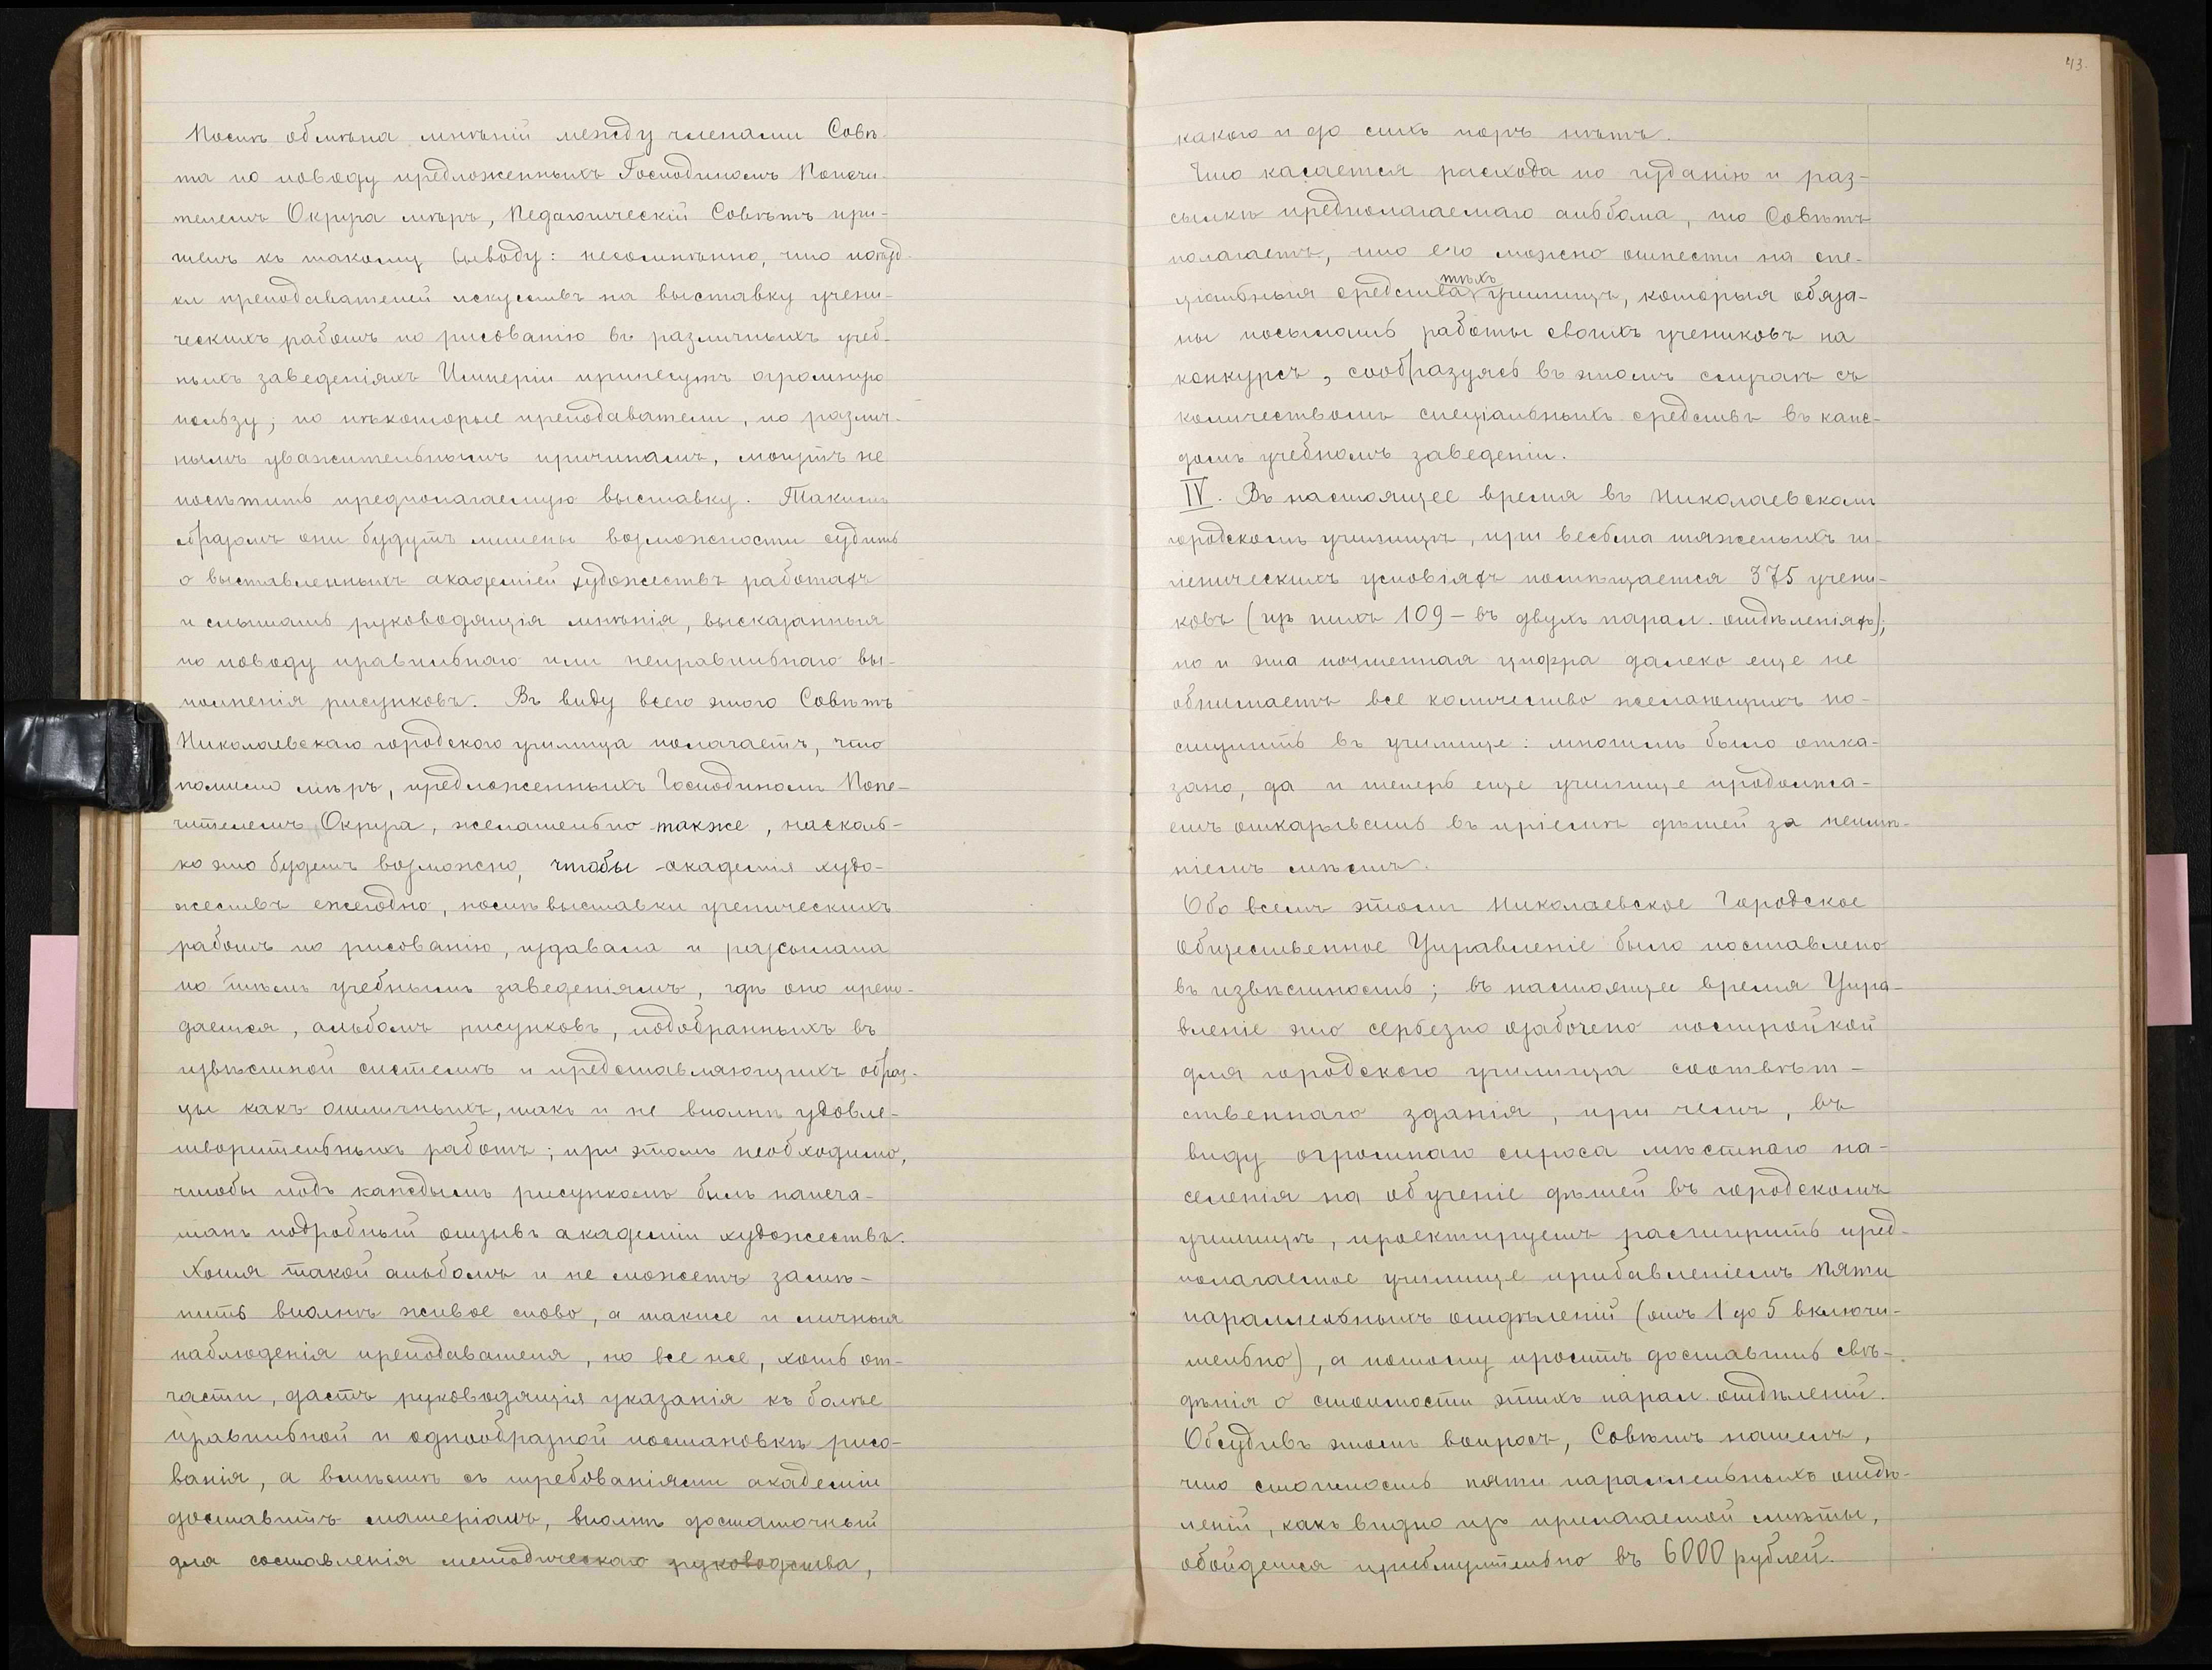 Послѣ обмѣна мнѣній между членами Совѣ-
та по поводу предложенныхъ Господиномъ Попечи-
телемъ Округа мѣръ, Педагогическій Совѣтъ при-
шелъ къ такому выводу: несомнѣнно, что поѣзд-
ки преподавателей искуствъ на выставку учени-
ческихъ работъ по рисованію въ различныхъ учеб-
ныхъ заведеніяхъ Имперіи принесутъ огромную
пользу; но нѣкоторые преподаватели, по различ-
нымъ уважительнымъ причинамъ, могутъ не
посѣтить предполагаемую выставку. Такимъ
образомъ они будутъ лишены возможности судить
о выставленныхъ академіей художествъ работахъ
и слышать руководящія мнѣнія, высказанныя
по поводу правильнаго или неправильнаго вы-
полненія рисунковъ. Въ виду всего этого Совѣтъ
Николаевскаго городского училища полагаетъ, что
помимо мѣръ, предложенныхъ Господиномъ Попе-
чителемъ Округа, желательно также, насколь-
ко это будетъ возможно, чтобы академія худо-
жествъ ежегодно, послѣ выставки ученическихъ
работъ по рисованію, издавала и разсылала
по тѣмъ учебнымъ заведеніямъ, гдѣ оно препо-
дается, альбомъ рисунковъ, подобранныхъ въ
извѣстной системѣ и представляющихъ образ-
цы какъ отличныхъ, такъ и не вполнѣ удовле-
творительныхъ работъ; при этомъ необходимо,
чтобы подъ каждымъ рисункомъ былъ напеча-
танъ подробный отзывъ академіи художествъ.
Хотя такой альбомъ и не можетъ замѣ-
нить вполнѣ живое слово, а также и личныя
наблюденія преподавателя, но все же, хоть от-
части, дастъ руководящія указанія къ болѣе
правильной и однообразной постановкѣ рисо-
ванія, а вмѣстѣ съ требованіями академіи
доставитъ матеріалъ, вполнѣ достаточный
для составленія методическаго руководства,
43.
какого и до сихъ поръ нѣтъ.
Что касается расхода по изданію и раз-
сылкѣ предполагаемаго альбома, то Совѣтъ
полагаетъ, что его можно отнести на спе-
тѣхъ
ціальныя средства училищъ, которыя обяза-
ны посылать работы своихъ учениковъ на
конкурсъ, сообразуясь въ этомъ случаѣ съ
количествомъ спеціальныхъ средствъ въ каж-
домъ учебномъ заведеніи.
IV. Въ настоящее время въ Николаевскомъ
городскомъ училищѣ, при весьма тяжелыхъ ги-
гіеническихъ условіяхъ помѣщается 375 учени-
ковъ (изъ нихъ 109 – въ двухъ парал. отдѣленіяхъ);
но и эта почтенная цифра далеко еще не
обнимаетъ все количество желающихъ по-
ступить въ училище: многимъ было отка-
зано, да и теперь еще училище продолжа-
етъ отказывать въ пріемѣ дѣтей за неимѣ-
ніемъ мѣстъ.
Обо всемъ этомъ Николаевское Городское
Общественное Управленіе было поставлено
въ извѣстность; въ настоящее время Упра-
вленіе это серьезно озабочено постройкой
для городского училища соотвѣт-
ственнаго зданія, при чемъ, въ
виду огромнаго спроса мѣстнаго на-
селенія на обученіе дѣтей въ городскомъ
училищѣ, проектируетъ расширить пред-
полагаемое училище прибавленіемъ пяти
параллельныхъ отдѣленій (отъ 1 до 5 включи-
тельно), а потому проситъ доставить свѣ-
дѣнія о стоимости этихъ парал. отдѣленій.
Обсудивъ этотъ вопросъ, Совѣтъ нашелъ,
что стоимость пяти параллельныхъ отдѣ-
леній, какъ видно изъ прилагаемой смѣты,
обойдется приблизительно въ 6000 рублей.